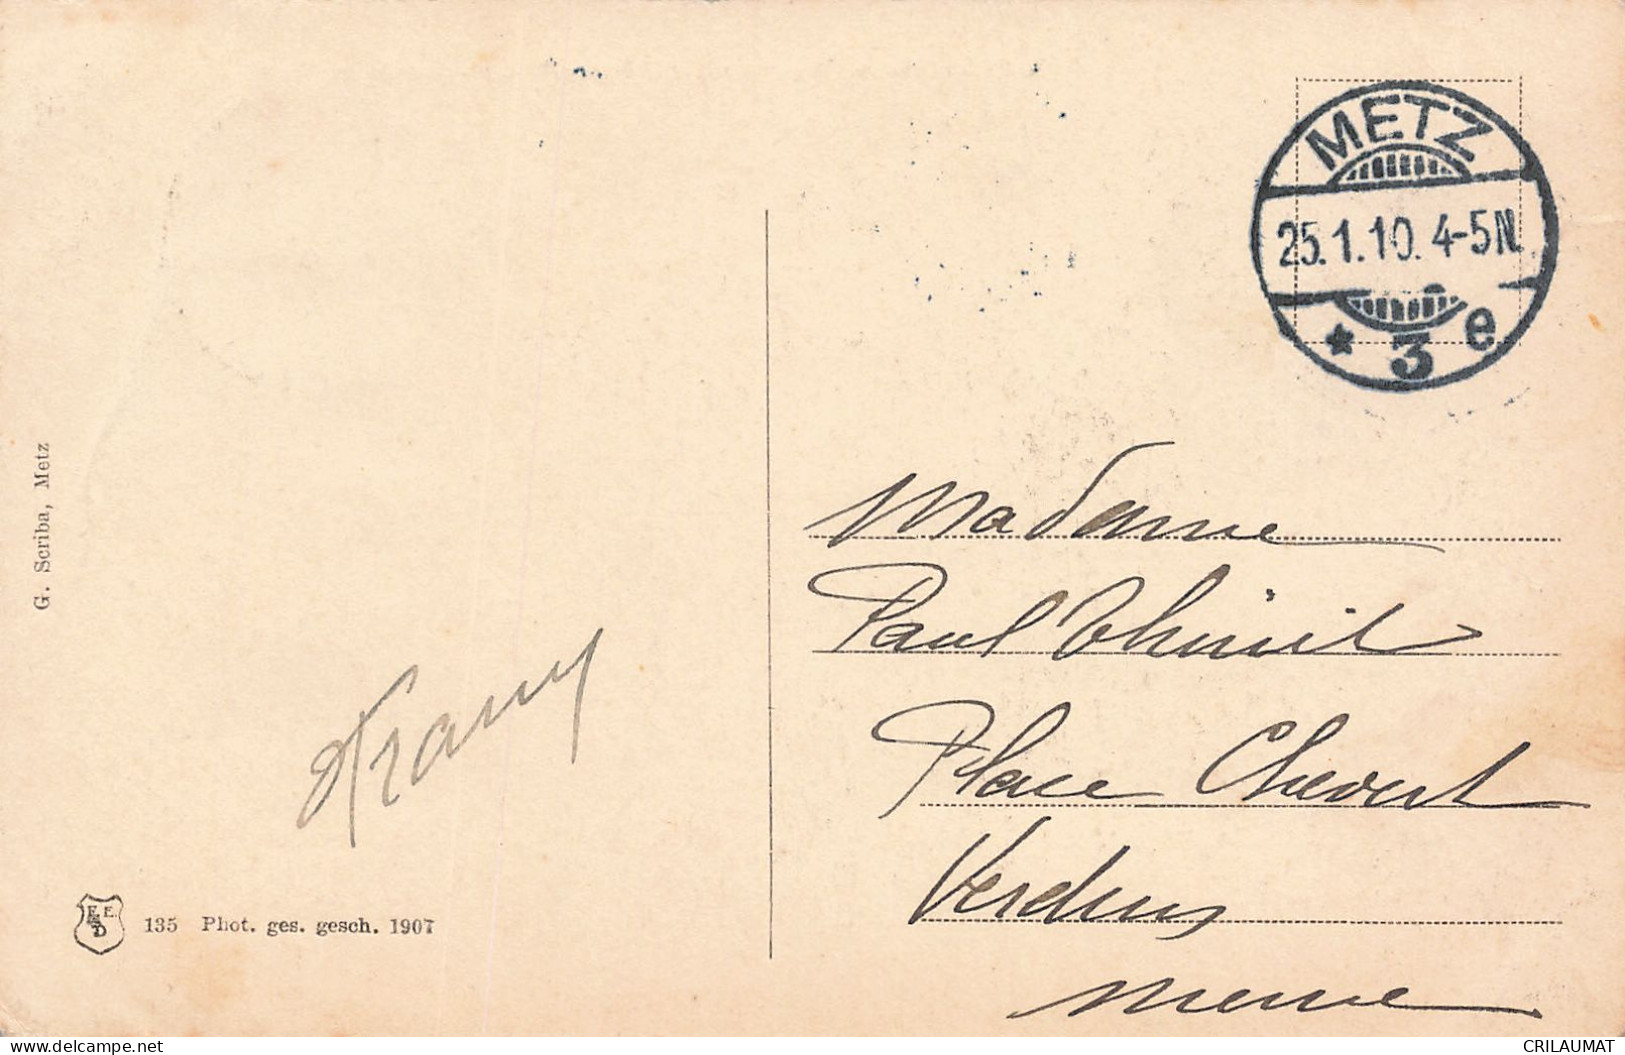 METZ
25.1.10. 4-5N.
* 3 e
Madame
Paul
Place Chevert
Verdun
Meuse
G. Scriba, Metz
135 Phot. ges. gesch. 1907
delcampe.net
CRILAUMAT